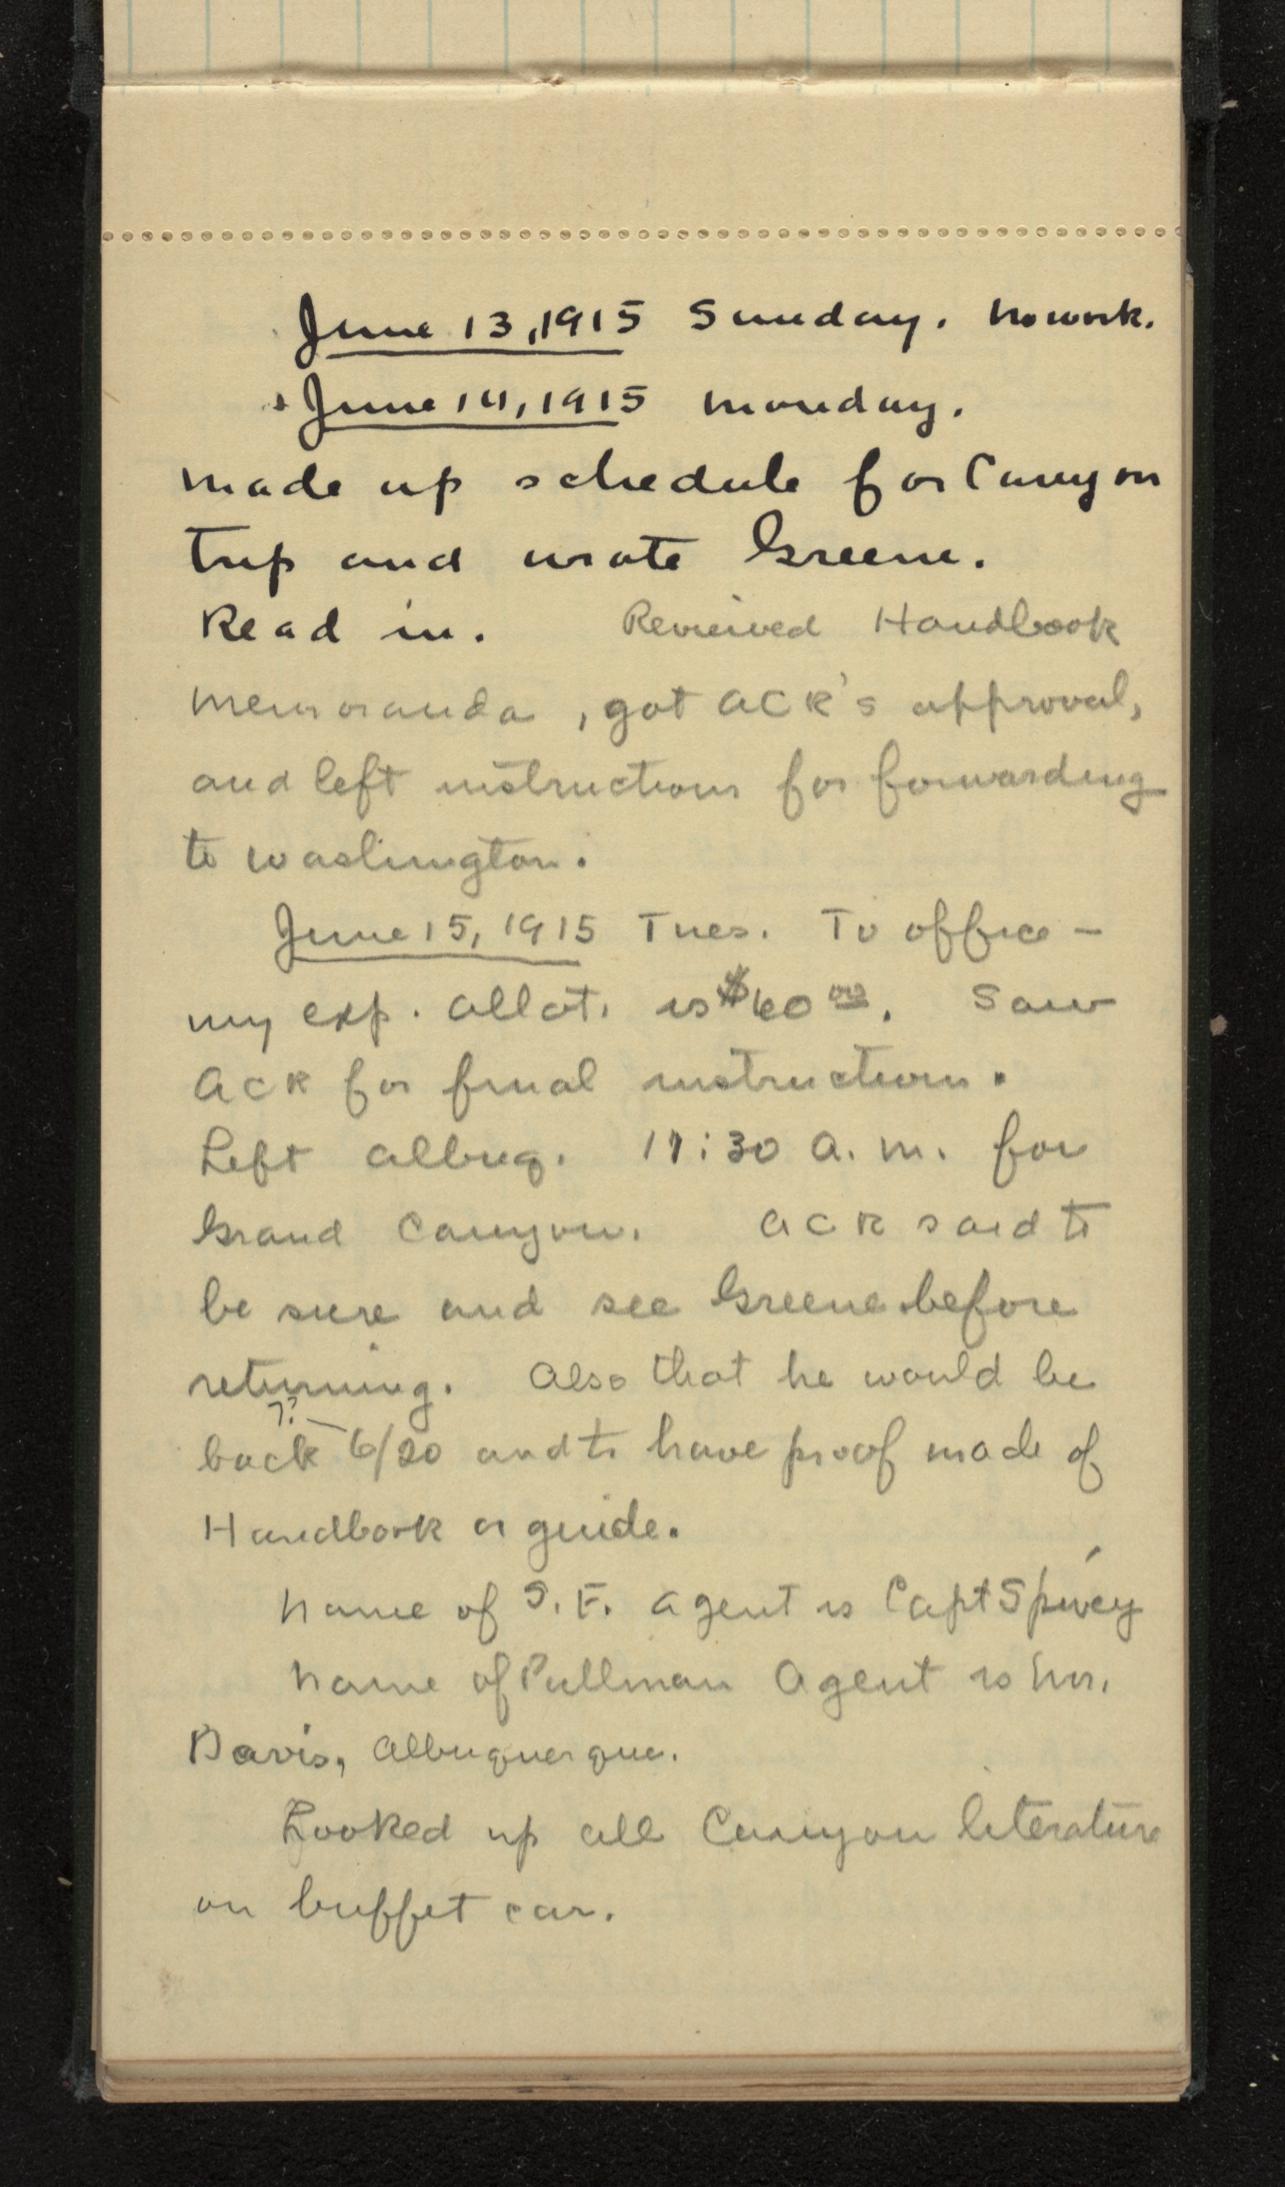 June 13, 1915 Sunday. No work.
June 14, 1915 Monday.
Made up schedule for Canyon
trip and wrote Greene.
Read in. Received Handbook
memoranda, got ACK's approval,
and left instructions for forwarding
to Washington.
June 15, 1915 Tues. To office –
my exp. allot. is $60 00. Saw
ACK for final instructions.
Left Albuq. 11:30 A.M. for
Grand Canyon. ACK said to
be sure and see Greene before
returning. Also that he would be
??
back 6/20 and to have proof made of
Handbook or guide.
Name of S.F. Agent is Capt Spivey
Name of Pullman Agent is Mr.
Davis, Albuquerque.
Looked up all Canyon literature
on buffet car.